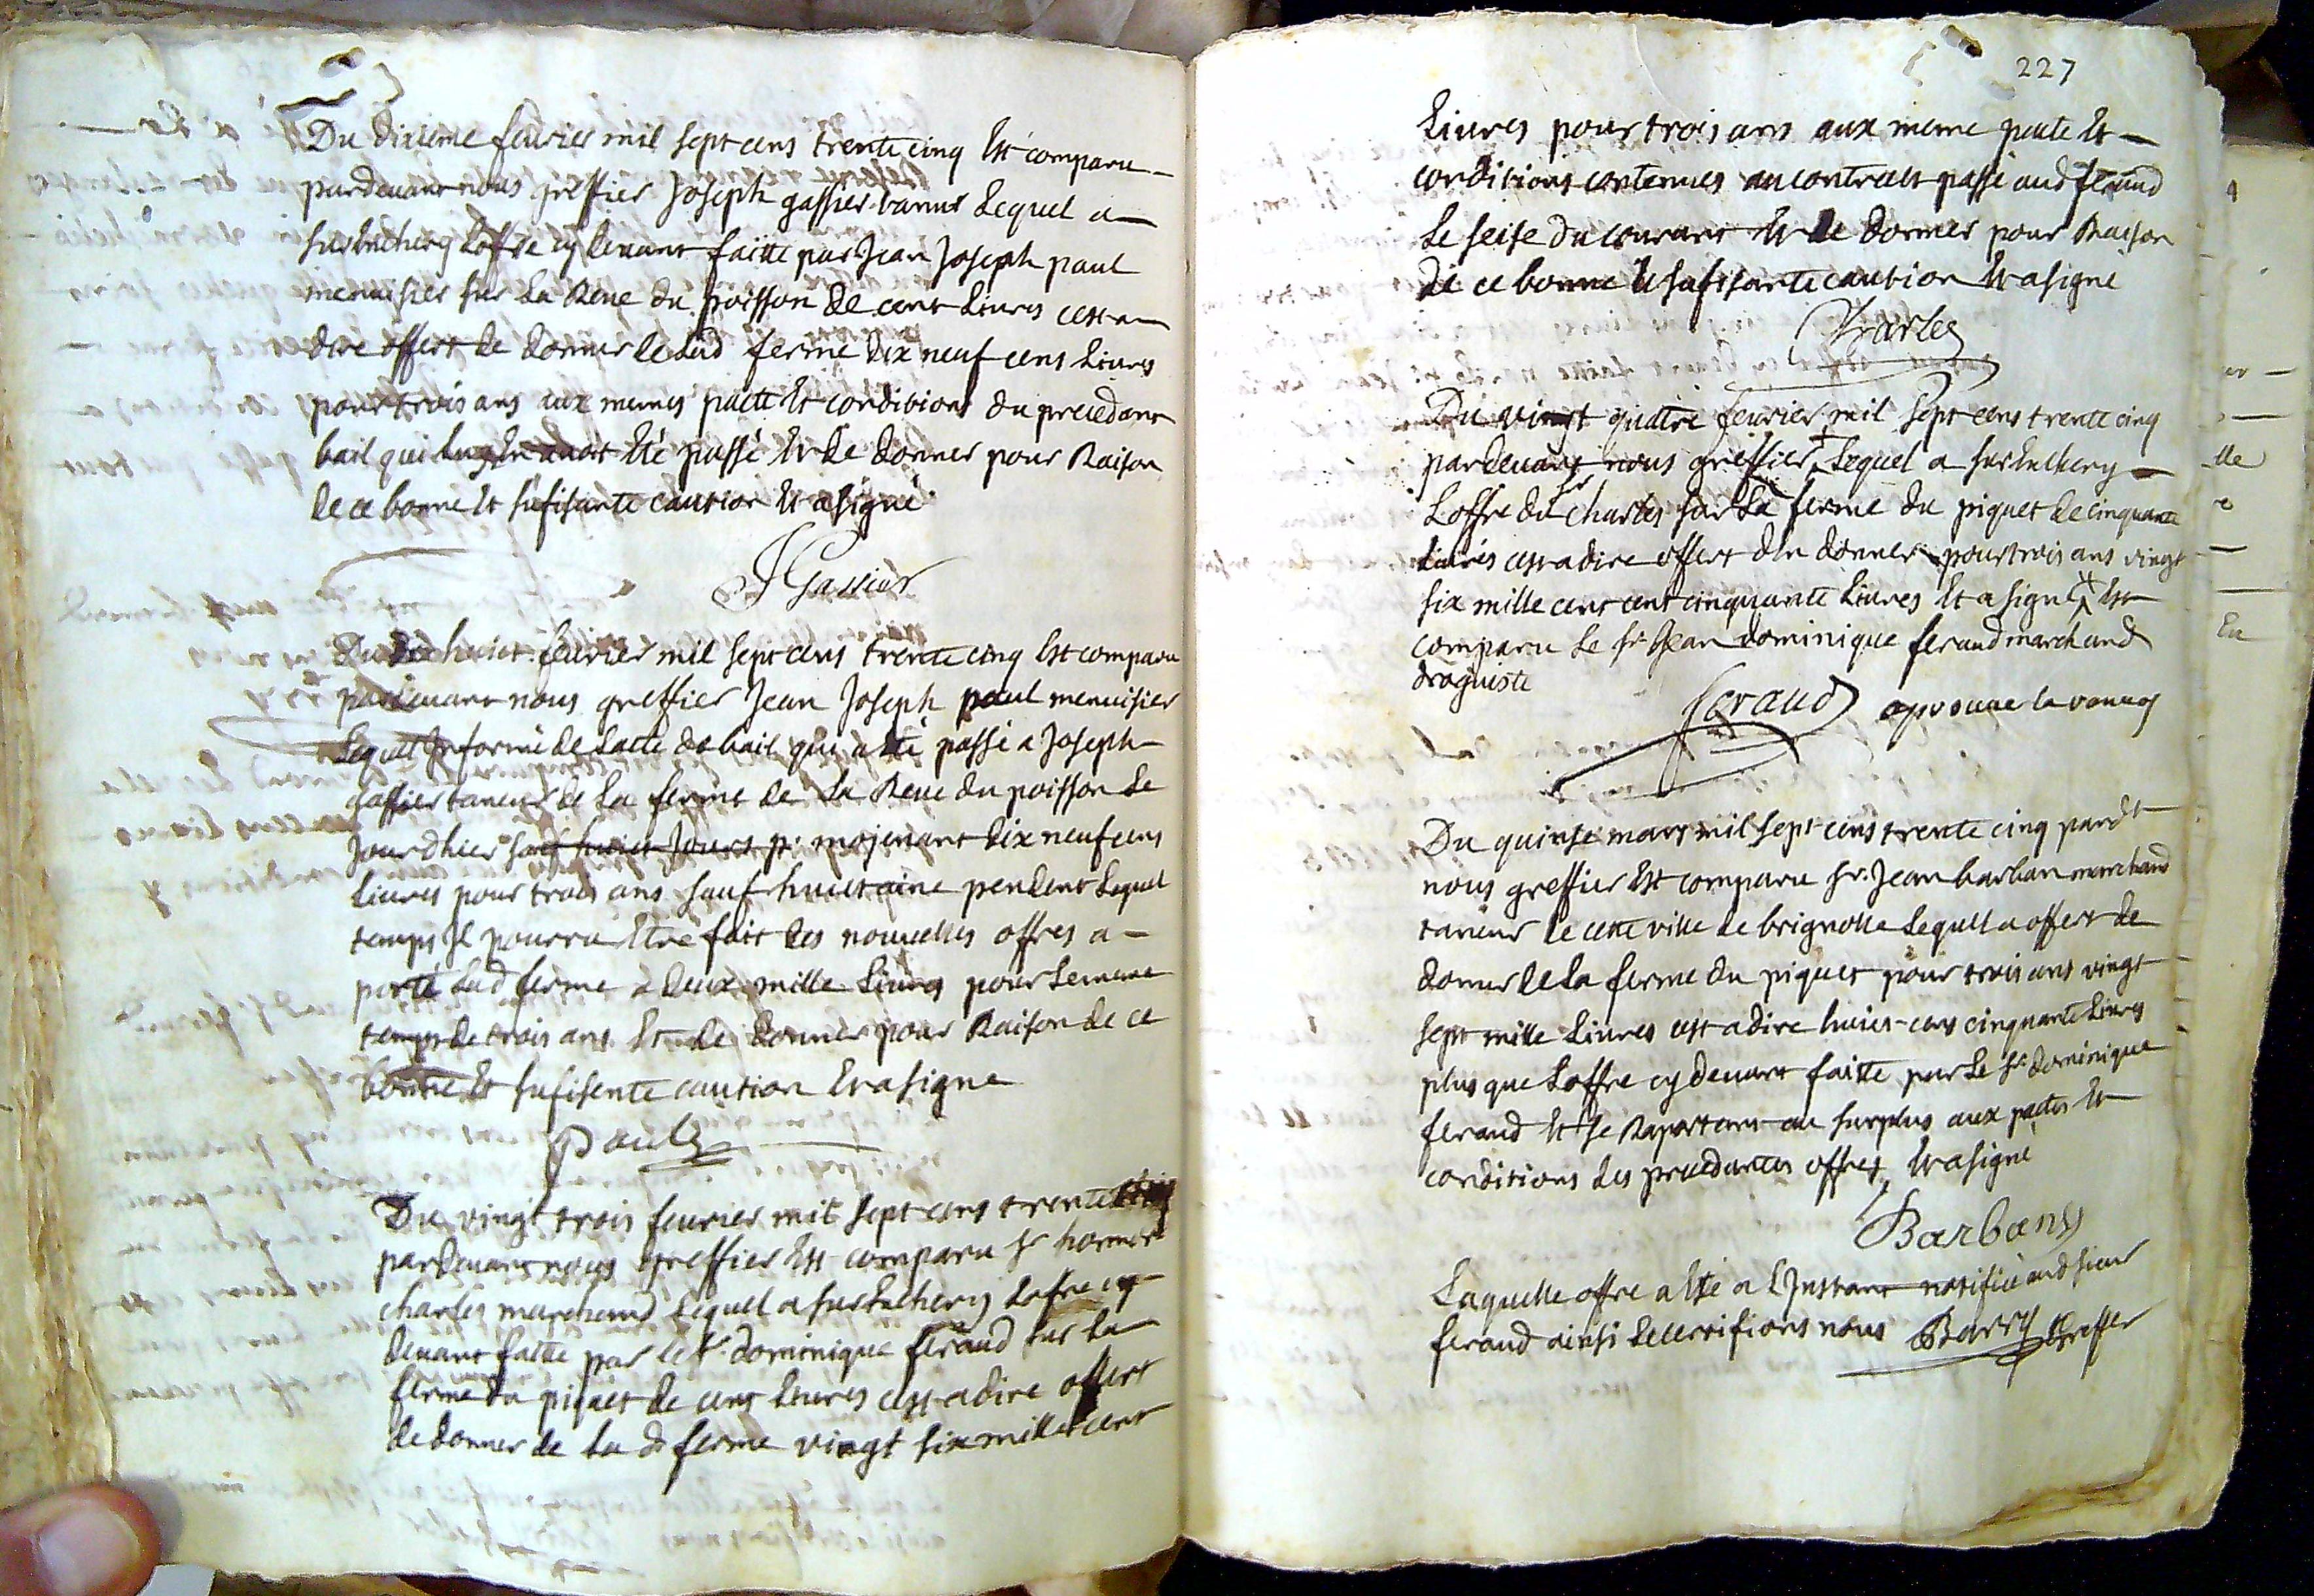 Du dixieme feurier mil sept cens trente cinq Est comparu
pardeuant nous greffier Joseph gassier tanur Lequel a
surEnchery Loffre cy deuant faitte par Jean Joseph paul
menuisier sur La Reue du poisson de cent Liures cest a
dire offert de donner de Lad ferme dix neuf cens Liures
pour trois ans aux memes pacte Et conditions du precedant
bail qui luy En auoit Eté passé Et de donner pour Raison
de ce bonne Et sufisante caution Et a signé
J Gassier
Du dix huict feurier mil sept cens trente cinq Est comparu
pardeuant nous greffier Jean Joseph paul menuisier
Lequel Informé de Lacte de bail qui a Eté passé a Joseph
gassier taneur de La ferme de La Reue du poisson Le
Jour dhier sauf huict Jours pr mojenant dix neuf cens
Liures pour trois ans sauf huictaine pendent Lequel
temps Il pourra Etre fait des nouuelles offres a
porté Lad ferme a deux mille Liures pour Le meme
temps de trois ans Et de donner pour Raison de ce
bonne Et sufisente caution Et a signe
Paul
Du vingt trois feurier mil sept cens trente cinq
pardeuant nous greffier Est comparu sr honnoré
charles marchand Lequel a surEnchery Lofre cy
deuant faitte par le sr dominique feraud sur La
ferme du piquet de cent Liures cest a dire offert
de donner de La de ferme vingt six mille cent
227
Liures pour trois ans aux meme pacte Et
conditions contenues au contract passé aud feraud
Le seise du courant Et de donner pour Raison
de ce bonne Et sufisante caution Et a signe
Charles
Du vingt quatre feurier mil sept cens trente cinq
pardeuant nous greffier Lequel a surEnchery
Loffre du sr charles sur La ferme du piquet de cinquante
Liures cest a dire offert den donner pour trois ans vingt
six mille cent cent cinquante Liures Et a signé Est
comparu Le sr Jean dominique feraud marchand
droguiste
feraud aprouue le ranuoy
Du quinse mars mil sept cens trente cinq pardt
nous greffier Est comparu sr. Jean barban marchand
taneur de cette ville de brignolle Lequel a offert de
donner de La ferme du piquet pour trois ans vingt
sept mille Liures cest a dire huict cens cinquante Liures
plus que Loffre cy deuant faitte par Le sr dominique
feraud Et se Raportant au surplus aux pactes Et
conditions des precedantes offres Et a signé
Barbans
Laquelle offre a Eté a LJnstant notifiée aud sieur
feraud ainsi Le certifions nous Barry greffier